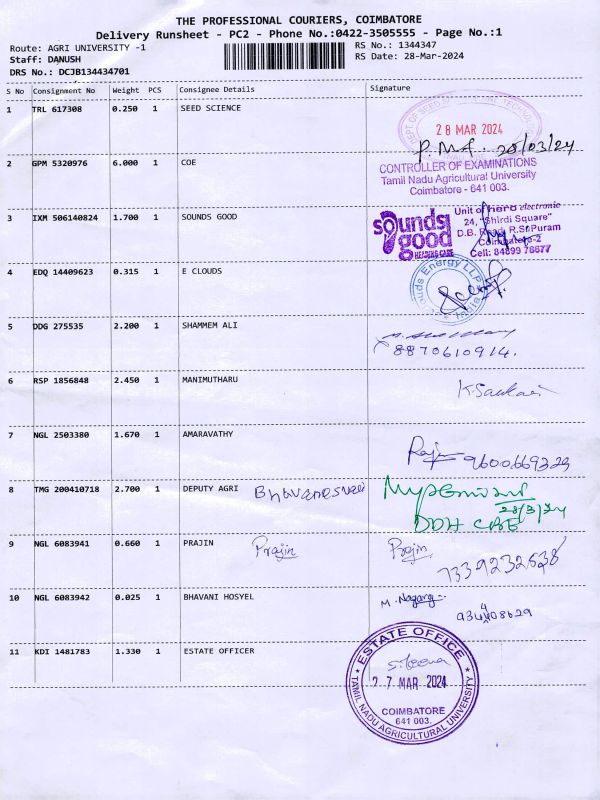 THE PROFESSIONAL COURIERS, COIMBATORE
Delivery Runsheet - PC2 - Phone No.:0422-3505555 - Page No.:1
Route: AGRI UNIVERSITY -1 RS No.: 1344347
Staff: DANUSH RS Date: 28-Mar-2024
DRS No.: DCJB134434701
S No Consignment No Weight PCS Consignee Details Signature
1 TRL 617308 0.250 1 SEED SCIENCE
28 MAR 2024
28/03/24
2 GPM 5320976 6.000 1 COE
CONTROLLER OF EXAMINATIONS
Tamil Nadu Agricultural University
Coimbatore - 641 003.
3 IXM 506140824 1.700 1 SOUNDS GOOD
sounds good
HEARING CARE
Unit of hero electronic
24, "Shirdi Square"
D.B. Road, R.S.Puram
Coimbatore-2
Cell: 84899 76677
4 EDQ 14409623 0.315 1 E CLOUDS
Clouds Energy LLP
5 DDG 275535 2.200 1 SHAMMEM ALI
8870610914.
6 RSP 1856848 2.450 1 MANIMUTHARU
K.Sankari
7 NGL 2503380 1.670 1 AMARAVATHY
Raju 9600669329
8 TMG 200410718 2.700 1 DEPUTY AGRI
28/3/24
DDH CBE
9 NGL 6083941 0.660 1 PRAJIN Prajin Prajin
7339232638
10 NGL 6083942 0.025 1 BHAVANI HOSYEL
M. Nagaraj
11 KDI 1481783 1.330 1 ESTATE OFFICER
ESTATE OFFICE
27 MAR 2024
COIMBATORE
641 003.
TAMIL NADU AGRICULTURAL UNIVERSITY